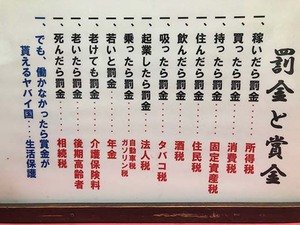 罰金と賞金
一、稼いだら罰金・・・・所得税
一、買ったら罰金・・・・消費税
一、持ったら罰金・・・・固定資産税
一、住んだら罰金・・・・住民税
一、飲んだら罰金・・・・酒税
一、吸ったら罰金・・・・タバコ税
一、起業したら罰金・・・法人税
一、乗ったら罰金・・・・自動車税
ガソリン税
一、若いと罰金・・・・・年金
一、老けても罰金・・・・介護保険料
一、老いたら罰金・・・・後期高齢者
一、死んだら罰金・・・・相続税
一、でも、働かなかったら賞金が
貰えるヤバイ国・・・生活保護